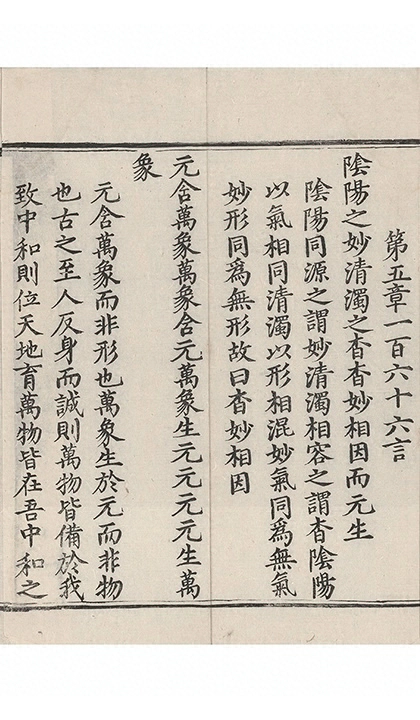 第五章一百六十六言
陰陽之妙清濁之杳杳妙相因而元生
陰陽同源之謂妙清濁相容之謂杳陰陽
以氣相同清濁以形相混妙氣同爲無氣
妙形同爲無形故曰杳妙相因
元含萬象萬象含元萬象生元元元生萬
象
元含萬象而非形也萬象生於元而非物
也古之至人反身而誠則萬物皆備於我
致中和則位天地育萬物皆在吾中和之